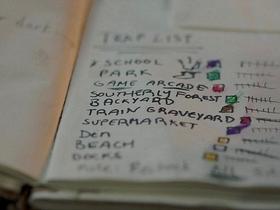 TRAP LIST
SCHOOL
PARK
GAME ARCADE
SOUTHERLY FOREST
BACKYARD
TRAIN GRAVEYARD
SUPERMARKET
Den
BEACH
DOCKS